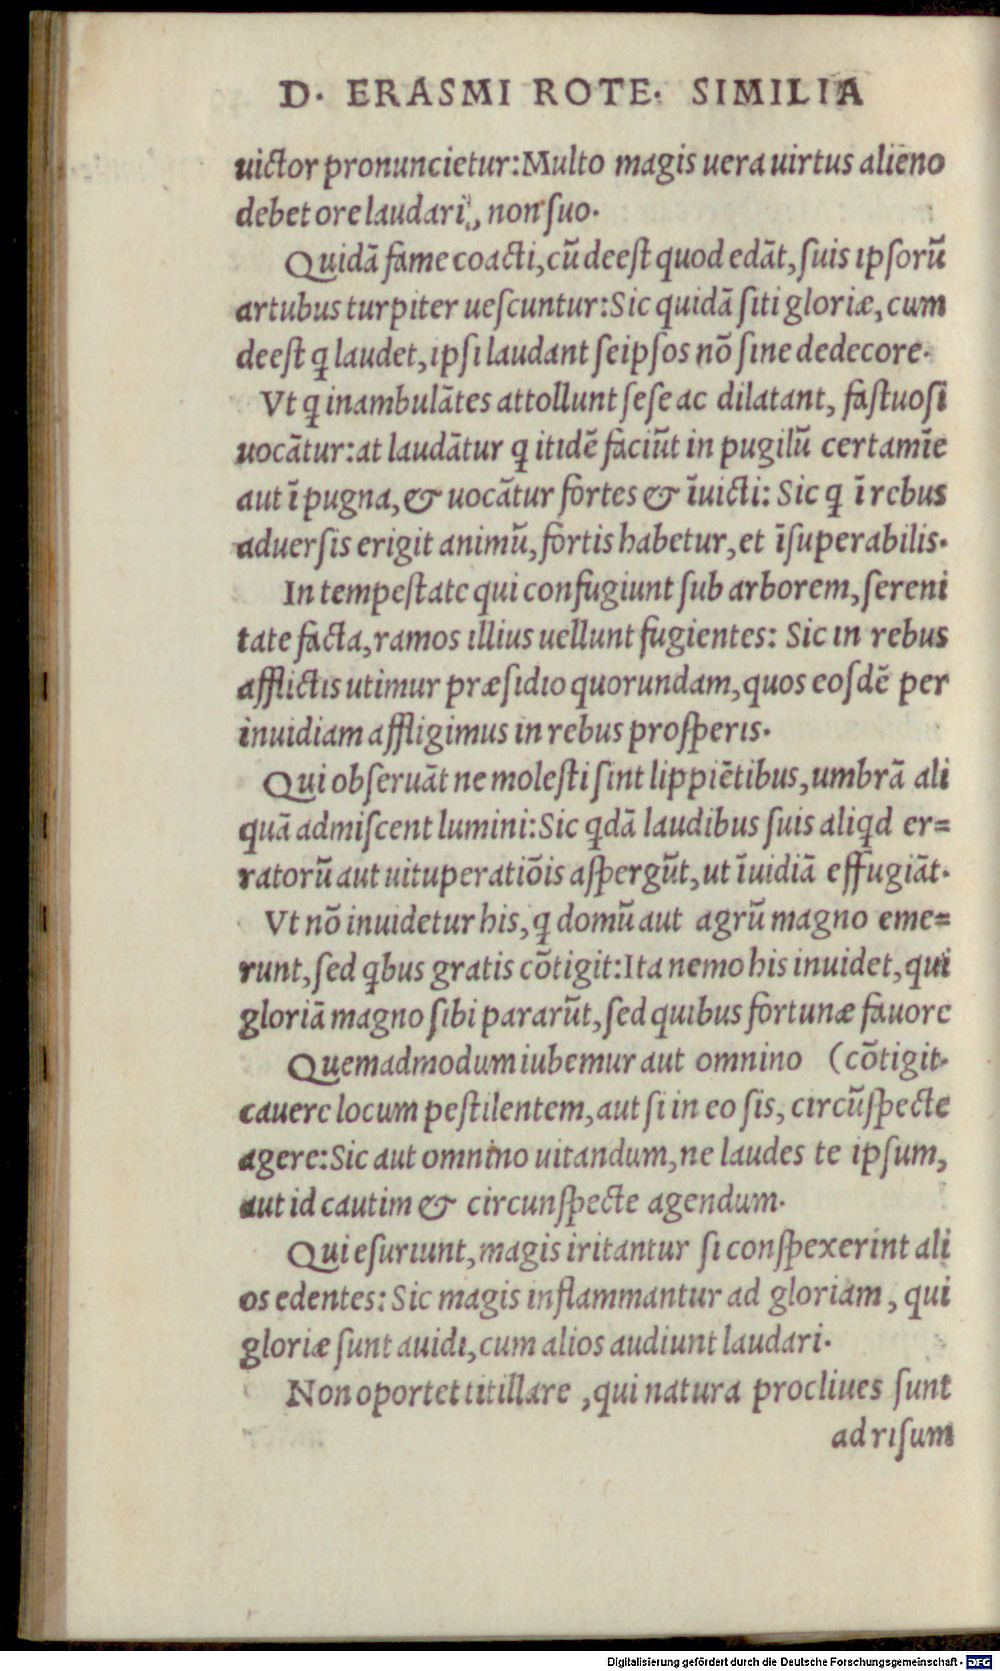 D. ERASMI ROTE. SIMILIA
uictor pronuncietur: Multo magis uera uirtus alieno
debet ore laudari, non suo.
Quidā fame coacti, cū deeſt quod edāt, ſuis ipſorū
artubus turpiter ueſcuntur: Sic quidā ſiti gloriæ, cum
deeſt q laudet, ipſi laudant ſeipſos nō ſine dedecore.
Vt q inambulātes attollunt ſeſe ac dilatant, faſtuoſi
uocātur: at laudātur q itidē faciūt in pugilū certamīe
aut ī pugna, & uocātur fortes & īuicti: Sic q ī rebus
aduerſis erigit animū, fortis habetur, et īſuperabilis.
In tempeſtate qui confugiunt ſub arborem, ſereni
tate facta, ramos illius uellunt fugientes: Sic in rebus
afflictis utimur præſidio quorundam, quos eoſdē per
inuidiam affligimus in rebus proſperis.
Qui obſeruāt ne moleſti ſint lippiētibus, umbrā ali
quā admiſcent lumini: Sic qdā laudibus ſuis aliqd er=
ratorū aut uituperatiōis aſpergūt, ut īuidiā effugiāt.
Vt nō inuidetur his, q domū aut agrū magno eme=
runt, ſed qbus gratis cōtigit: Ita nemo his inuidet, qui
gloriā magno ſibi pararūt, ſed quibus fortunæ fauore
Quemadmodum iubemur aut omnino (cōtigit.
cauere locum peſtilentem, aut ſi in eo ſis, circūſpecte
agere: Sic aut omnino uitandum, ne laudes te ipſum,
aut id cautim & circunſpecte agendum.
Qui eſuriunt, magis iritantur ſi conſpexerint ali
os edentes: Sic magis inflammantur ad gloriam, qui
gloriæ ſunt auidi, cum alios audiunt laudari.
Non oportet titillare, qui natura procliues ſunt
ad riſum
Digitalisierung gefördert durch die Deutsche Forschungsgemeinschaft - DFG